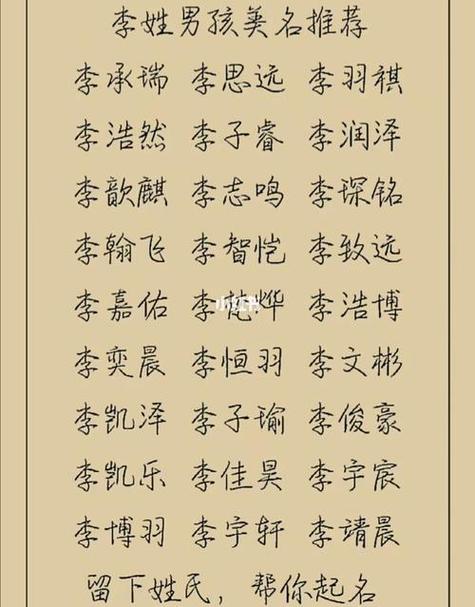 李姓男孩美名推荐
李承瑞 李思远 李羽祺
李浩然 李子睿 李润泽
李歆麒 李志鸣 李琛铭
李翰飞 李智恺 李致远
李嘉佑 李 烨 李浩博
小红书
李奕晨 李恒羽 李文彬
李凯泽 李子瑜 李俊豪
李凯乐 李佳昊 李宇宸
李博羽 李宇轩 李靖晨
留下姓氏，帮你起名